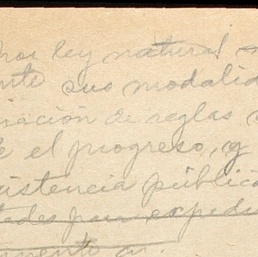 por ley natural
sus modalid
iación de reglas
el progreso, y
istencia pública
tades para expedi